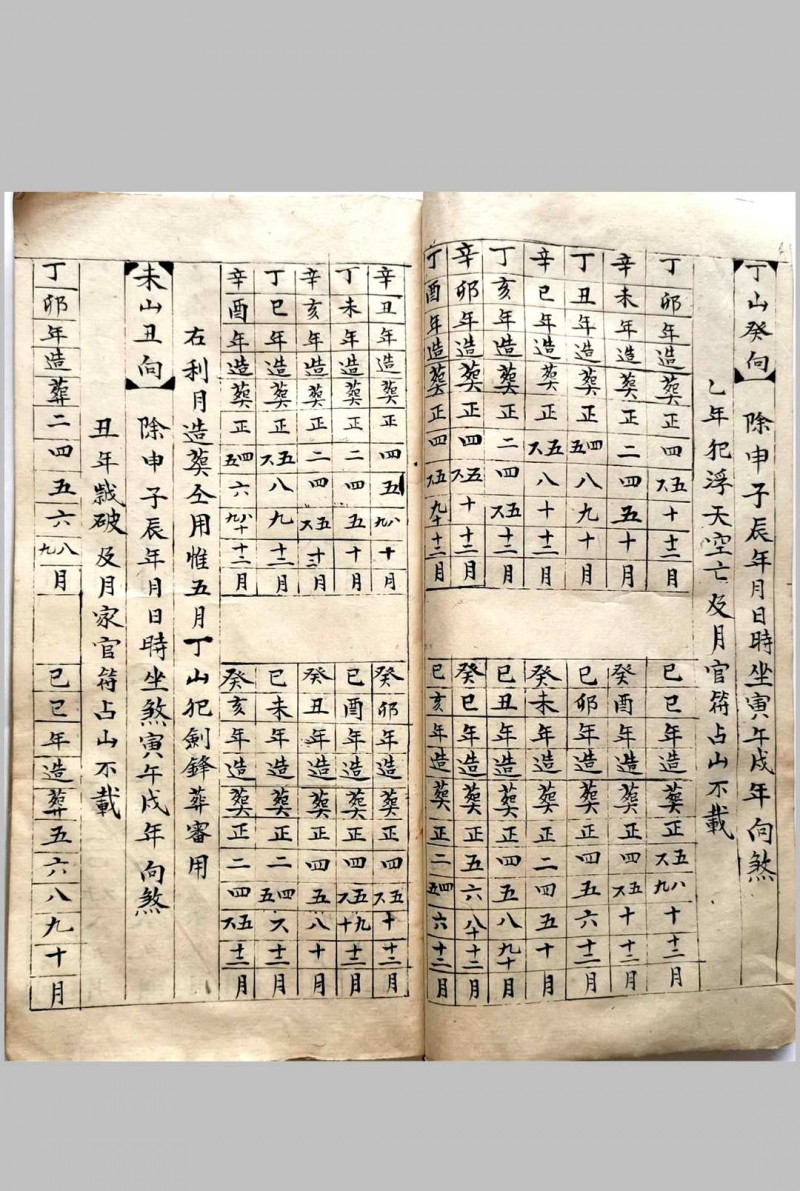 【丁山癸向】除申子辰年月日時坐寅午戌年向煞
乙年犯浮天空亡及月官符占山不載
丁卯年造葬正四五六十十二月
己巳年造葬正五六八九十十二月
辛未年造葬正二四五十十二月
癸酉年造葬正四五六十十二月
丁丑年造葬正四五八九十月
己卯年造葬正四五六十二月
辛巳年造葬正五六八十十二月
癸未年造葬正二四五十月
丁亥年造葬正二四五六十二月
己丑年造葬正四五八九十十二月
辛卯年造葬正四五六十十二月
癸巳年造葬正五六八十十二月
丁酉年造葬正四五六九十十二月
己亥年造葬正二四五六十二月
辛丑年造葬正四五八九十月
癸卯年造葬正四五六十十二月
丁未年造葬正二四五十月
己酉年造葬正四五六九十十二月
辛亥年造葬正二四五六十二月
癸丑年造葬正四五八十十二月
丁巳年造葬正五六八九十二月
己未年造葬正二四五六十二月
辛酉年造葬正四五六八九十十二月
癸亥年造葬正二四五六十二月
右利月造葬仝用惟五月丁山犯劍鋒葬審用
【未山丑向】除申子辰年月日時坐煞寅午戌年向煞
丑年破及月家官符占山不載
丁卯年造葬二四五六八九月
己巳年造葬五六八九十月